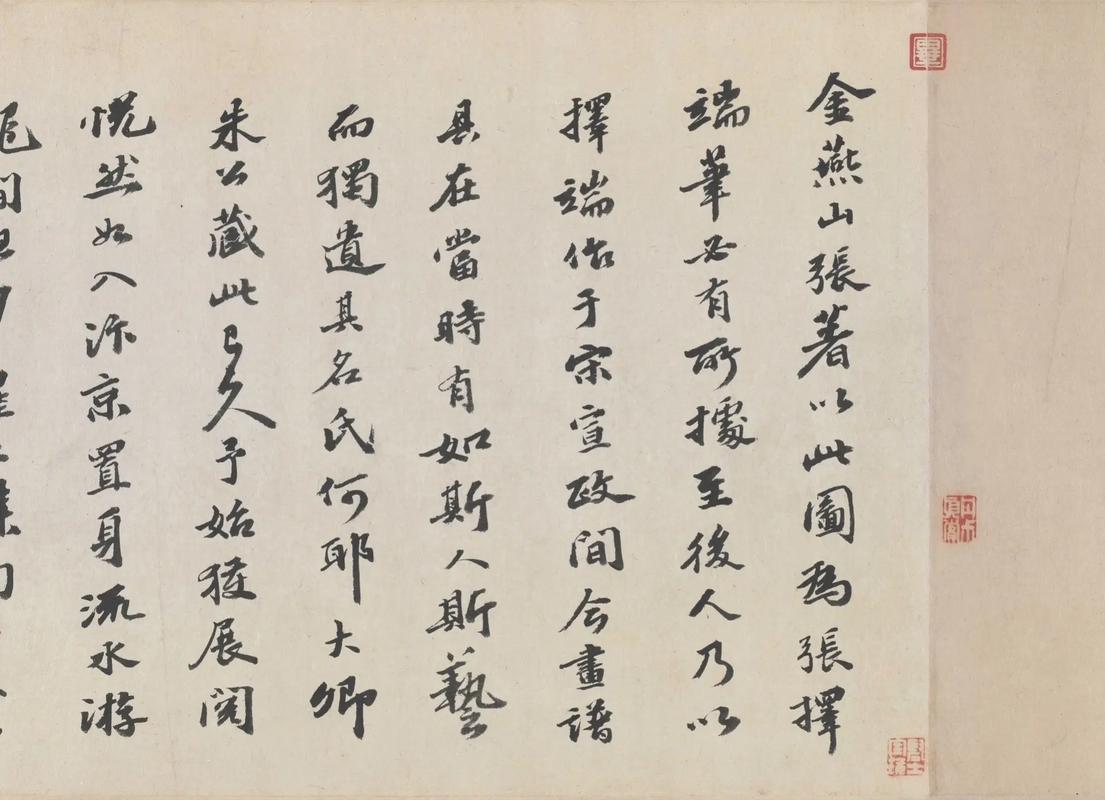 金燕山張著以此圖為張擇
端筆必有所據至後人乃以
擇端作于宋宣政間今畫譜
具在當時有如斯人斯藝
而獨遺其名氏何耶大卿
朱公藏此已久予始獲展閱
恍然如入汴京置身流水游